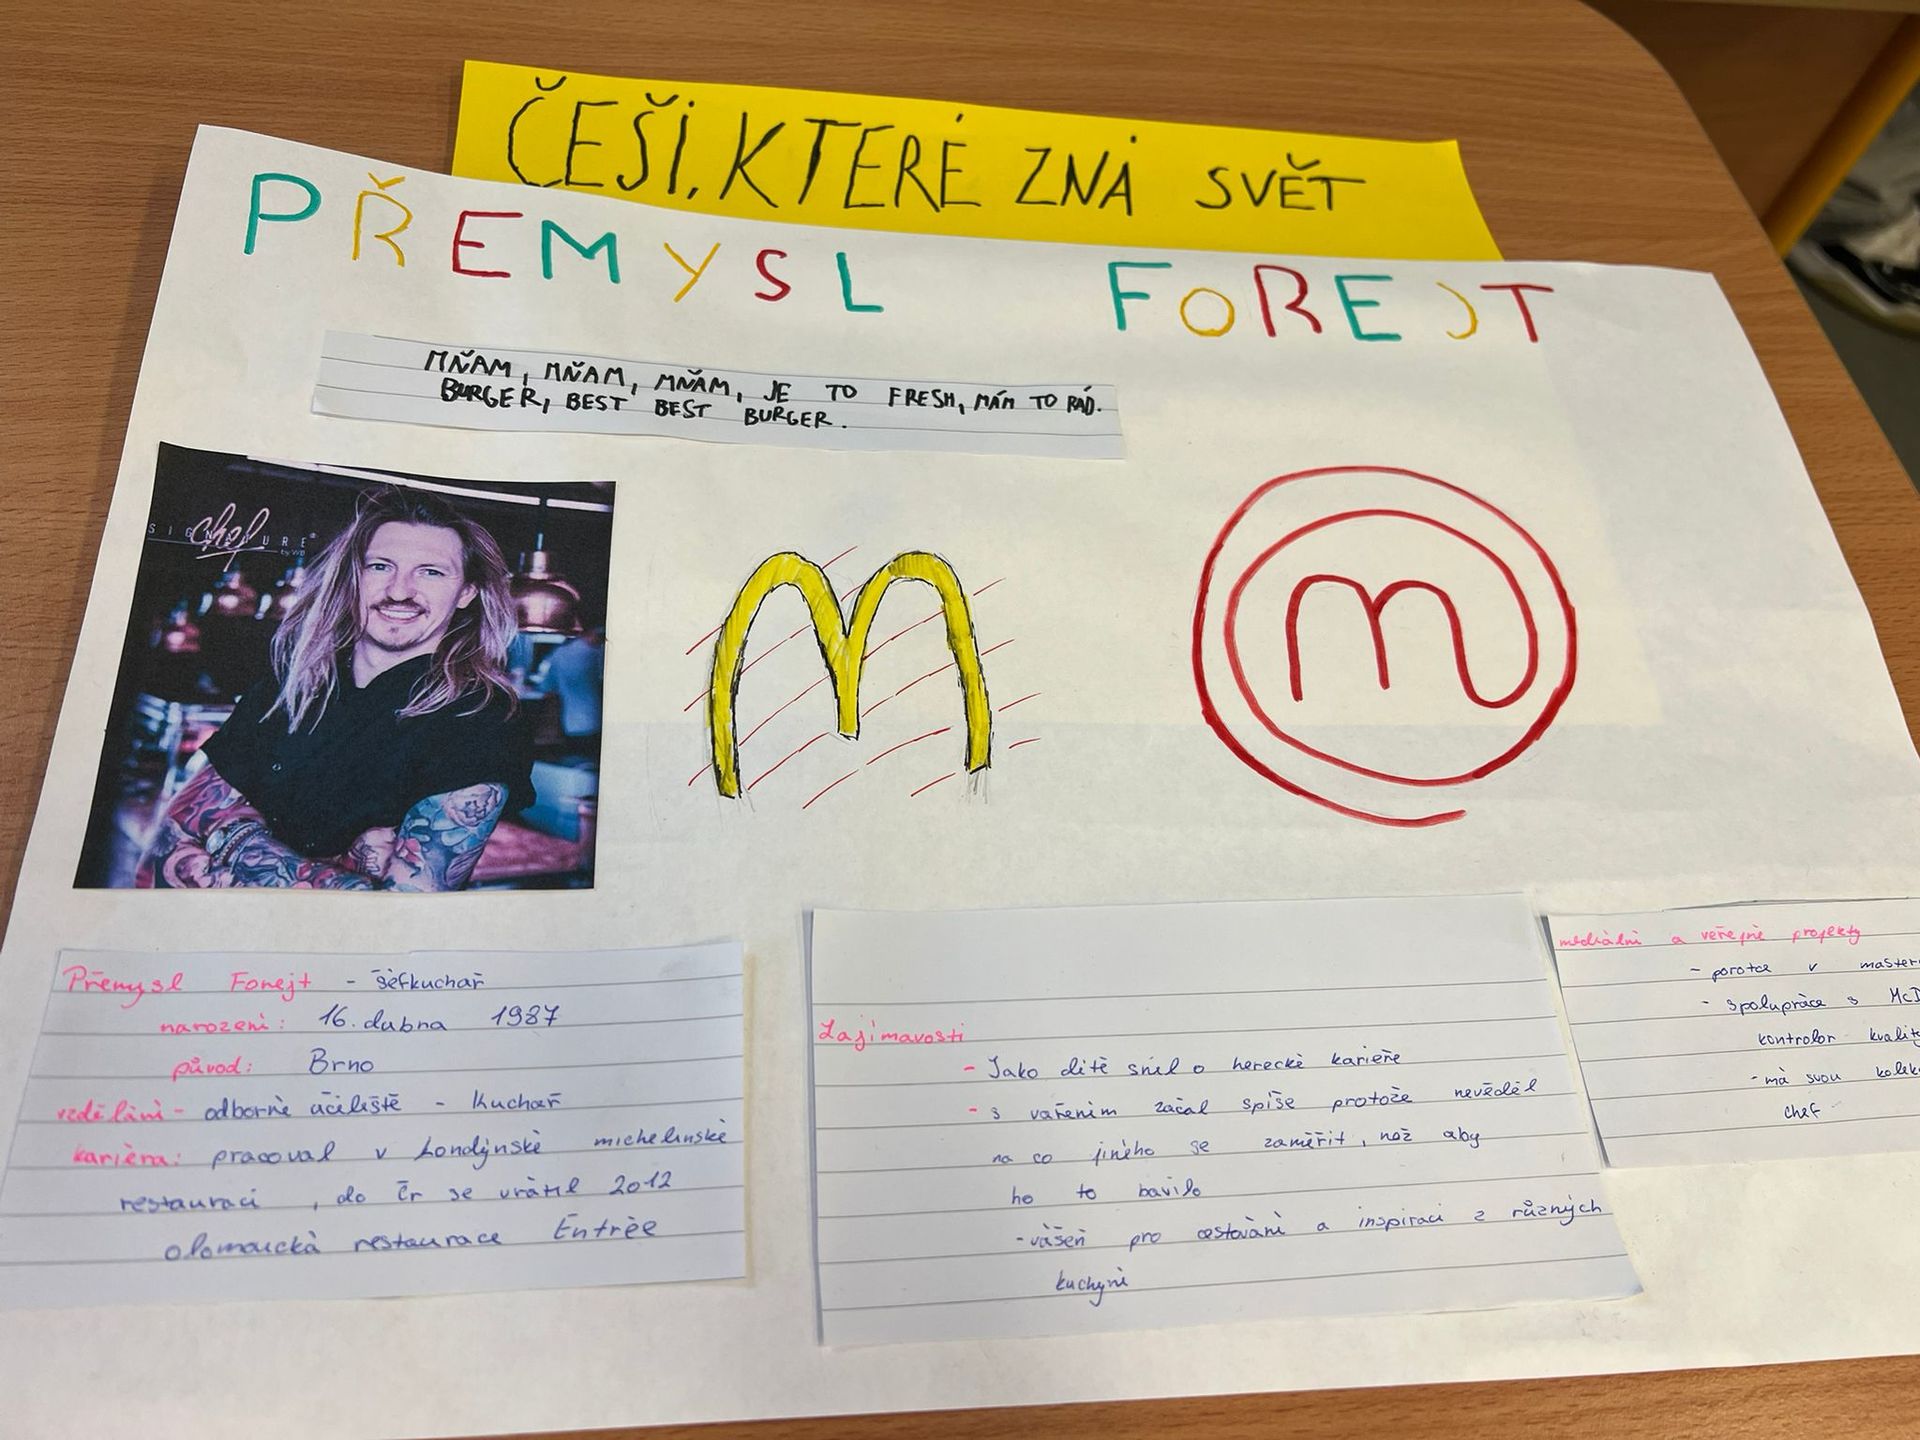 ČEŠI, KTERÉ ZNÁ SVĚT
PŘEMYSL FOREJT
MŇAM, MŇAM, MŇAM, JE TO FRESH, MÁM TO RÁD.
BURGER, BEST BEST BURGER.
SIGNATURE
chef
by WD
m
Přemysl Forejt - šéfkuchař
narození: 16. dubna 1987
původ: Brno
vzdělání - odborné učiliště - Kuchař
kariéra: pracoval v Londýnské michelinské
restauraci, do čr se vrátil 2012
olomoucká restaurace Entrée
Zajímavosti
- Jako dítě snil o herecké kariéře
- s vařením začal spíše protože nevěděl
na co jiného se zaměřit, než aby
ho to bavilo
- vášeň pro cestování a inspiraci z různých
kuchyní
mediální a veřejné projekty
- porotce v master
- spolupráce s McD
kontrolor kvality
- má svou kolek
chef